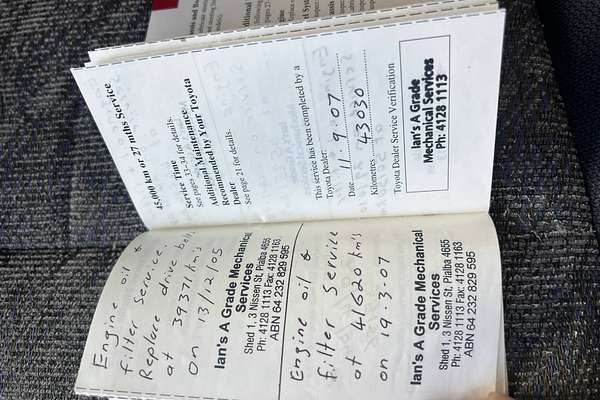 45,000 km or 27 mths Service
Service Time
See pages 33-34 for details.
Additional Maintenance
Recommended by Your Toyota
Dealer
See page 21 for details.
This service has been completed by a
Toyota Dealer:
Date 11.9.07
Kilometres 43030
Toyota Dealer Service Verification
Ian's A Grade
Mechanical Services
Ph: 4128 1113
Engine oil &
filter Service.
Replace drive belt,
at 39371 km's
on 13/12/05
Ian's A Grade Mechanical
Services
Shed 1, 3 Nissen St, Pialba 4655
Ph: 4128 1113 Fax: 4128 1163
ABN 64 232 829 595
Engine oil &
filter Service
at 41620 km's
on 19.3.07
Ian's A Grade Mechanical
Services
Shed 1, 3 Nissen St, Pialba 4655
Ph: 4128 1113 Fax: 4128 1163
ABN 64 232 829 595